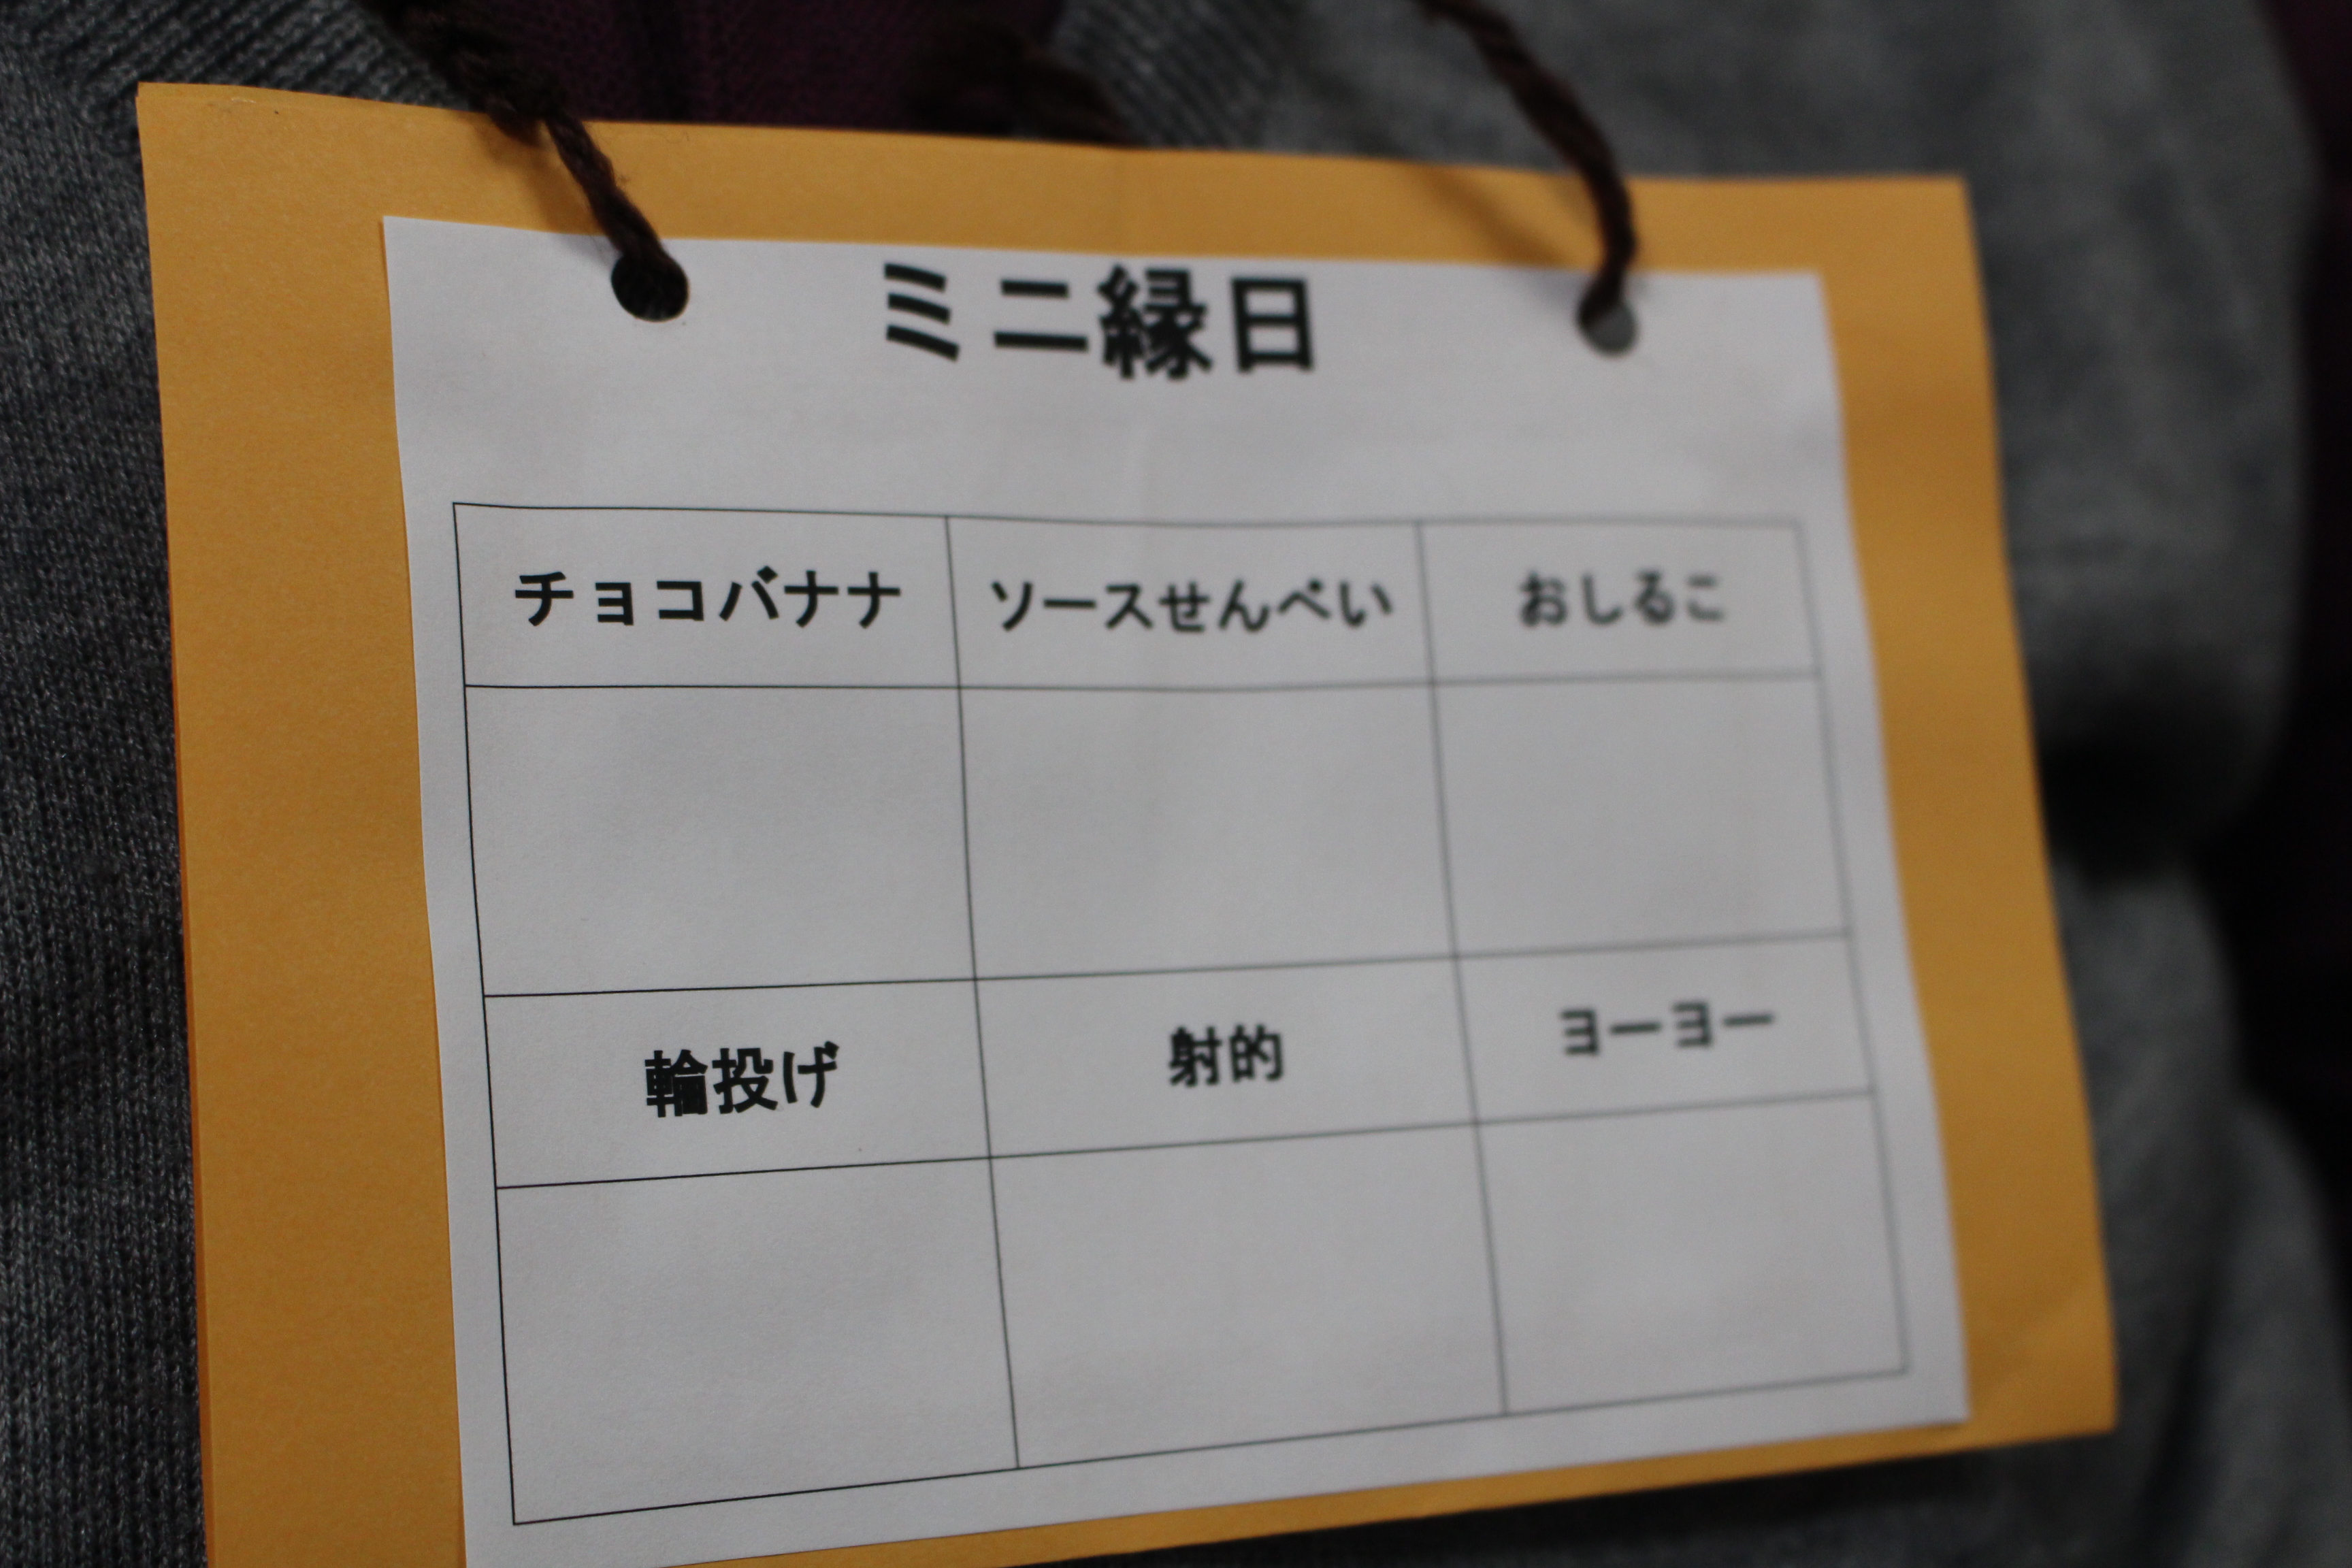 ミニ縁日
チョコバナナ ソースせんべい おしるこ
輪投げ 射的 ヨーヨー